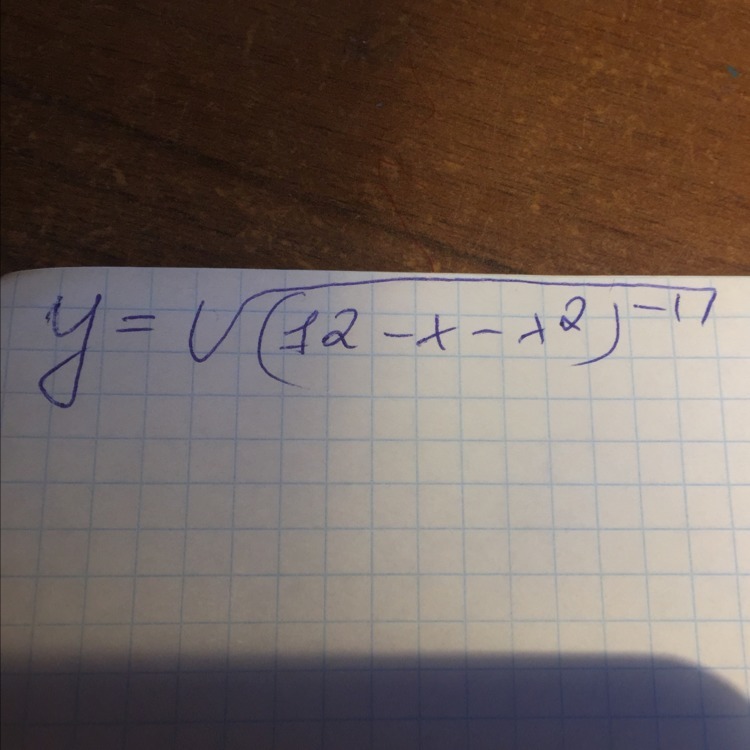 y = √(12 - x - x²)⁻¹